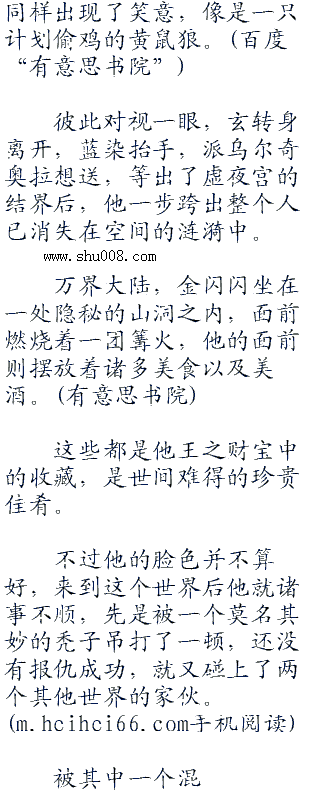 同样出现了笑意，像是一只
计划偷鸡的黄鼠狼。(百度
“有意思书院”)
彼此对视一眼，玄转身
离开，蓝染抬手，派乌尔奇
奥拉想送，等出了虚夜宫的
结界后，他一步跨出整个人
已消失在空间的涟漪中。
www.shu008.com
万界大陆，金闪闪坐在
一处隐秘的山洞之内，面前
燃烧着一团篝火，他的面前
则摆放着诸多美食以及美
酒。(有意思书院)
这些都是他王之财宝中
的收藏，是世间难得的珍贵
佳肴。
不过他的脸色并不算
好，来到这个世界后他就诸
事不顺，先是被一个莫名其
妙的秃子吊打了一顿，还没
有报仇成功，就又碰上了两
个其他世界的家伙。
(m.hcihci66.com手机阅读)
被其中一个混